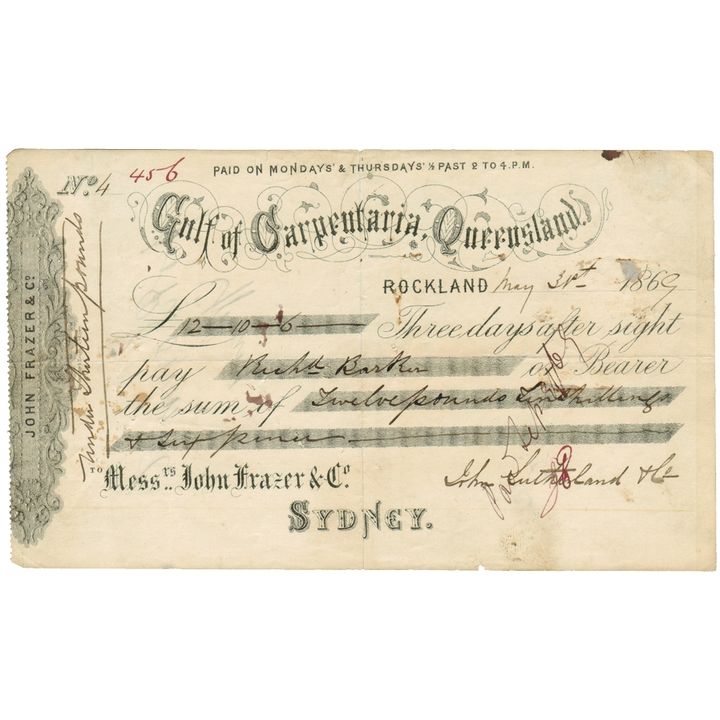 PAID ON MONDAYS' & THURSDAYS' ½ PAST 2 TO 4. P.M.
No. 4 456
Gulf of Carpentaria, Queensland.
ROCKLAND May 31st 1869
£ 12-10-6 Three days after sight
pay Richd Barker or Bearer
the sum of Twelve pounds Ten shillings
& Six pence
TO Messrs. John Frazer & Co.
John Sutherland & Co
SYDNEY.
JOHN FRAZER & Co.
Under Thirteen pounds